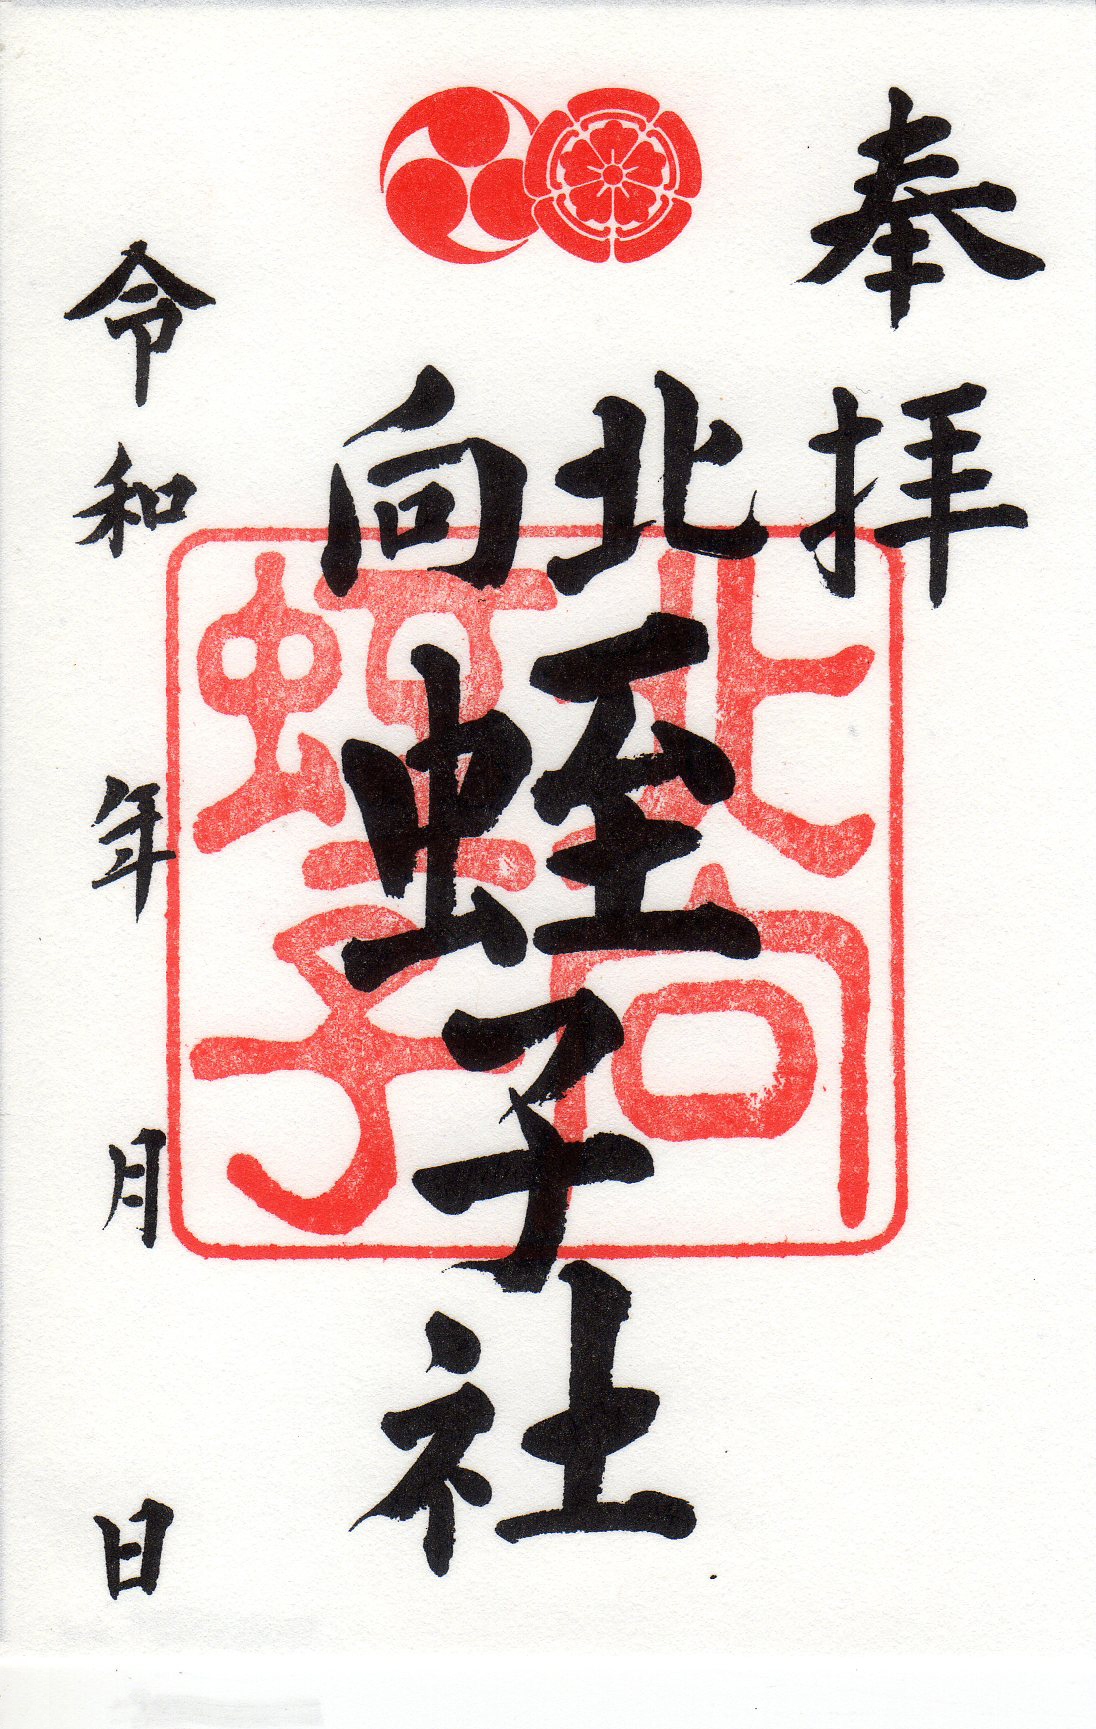 奉拝
北向
蛭子社
北向
蛭子
令和 年 月 日